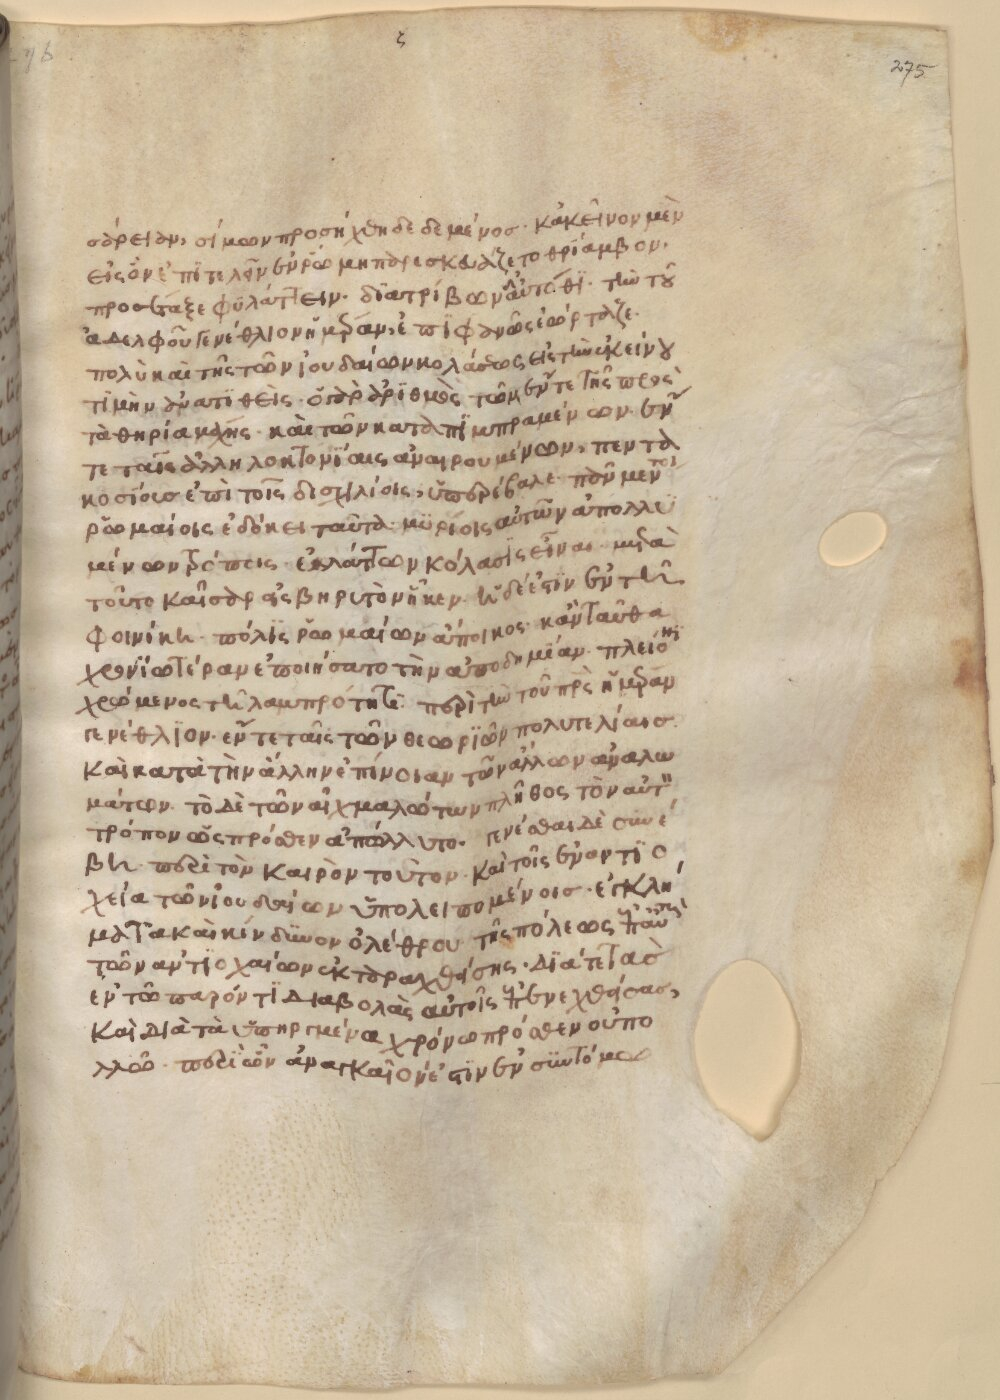 ϛ
275
σάρειαν, σίμων προσήχθη δεδεμένος· κἀκεῖνον μὲν
εἰς ὃν ἐπιτελεῖν ἐν ῥώμη παρεσκευάζετο θρίαμβον,
προσέταξε φυλάττειν· διατρίβων δ' αὐτόθι· τὴν τοῦ
ἀδελφοῦ γενέθλιον ἡμέραν, ἐπιφανῶς ἑώρταζε·
πολὺ καὶ τῆς τῶν ἰουδαίων κολάσεως εἰς τὴν ἐκείνου
τιμὴν ἀνατιθεὶς· ὁ γὰρ ἀριθμὸς τῶν ἔν τε τῆς πρὸς
τὰ θηρία μάχης· καὶ τῶν καταπιμπραμένων· ἔν
τε ταῖς ἀλληλοκτονίαις ἀναιρουμένων, πεντα
κοσίους ἐπὶ τοῖς δισχιλίοις, ὑπερέβαλε· πάν μέντοι
ῥωμαίοις ἐδόκει ταῦτα· μυρίοις αὐτῶν ἀπολλυ
μένων τρόποις· ἐλάττων κόλασις εἶναι· μετὰ
τοῦτο καῖσαρ εἰς βηρυτὸν ἧκεν· ἡ δέ ἐστιν ἐν τῆ
φοινίκη· πόλις ῥωμαίων ἄποικος· κἀνταῦθα
χρονιωτέραν ἐποιήσατο τὴν ἀποδημίαν· πλείονι
χρώμενος τῆ λαμπρότητι· περὶ τὴν τοῦ πρς ἡμέραν
γενέθλιον· ἔν τε ταῖς τῶν θεωριῶν πολυτελίαις
καὶ κατὰ τὴν ἄλλην ἐπίνοιαν τῶν ἄλλων ἀναλω
μάτων· τὸ δὲ τῶν αἰχμαλώτων πλῆθος τὸν αὐτὸν
τρόπον ὡς πρόσθεν ἀπόλλυτο· γενέσθαι δὲ συνέ
βη· περὶ τὸν καιρὸν τοῦτον· καὶ τοῖς ἐν αντιο
χεία τῶν ἰουδαίων ὑπολειπομένοις· ἐγκλή
ματα καὶ κίνδυνον ὀλέθρου τῆς πόλεως ἐπ' αὐτοὺς
τῶν αντιοχαίων ἐκταραχθείσης· διά τε τὰς
ἐν τῶ παρόντι διαβολὰς αὐτοῖς ἐπενεχθείσας,
καὶ διὰ τὰ ὑπηργμένα χρόνω πρόσθεν οὐ πο
λλῶ· περὶ ὧν ἀναγκαῖον ἐστὶν ἐν συντόμω